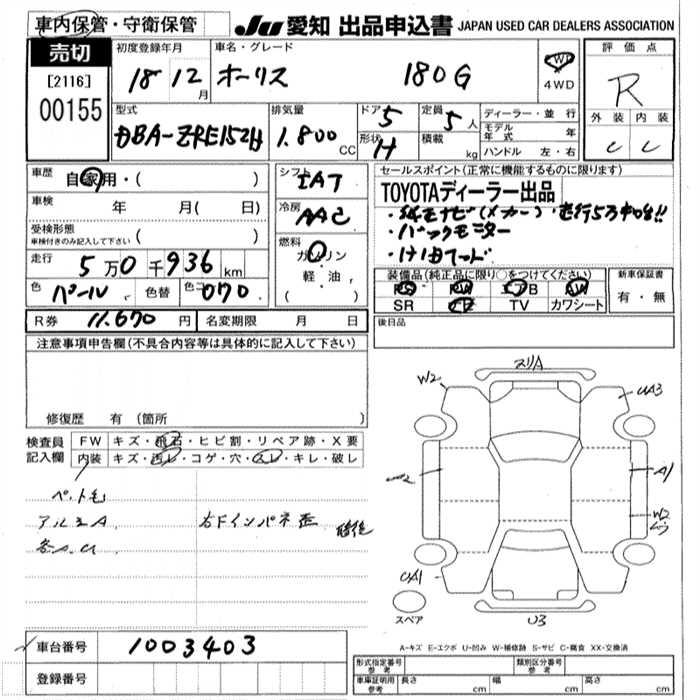 車内保管・守衛保管
JU 愛知 出品申込書 JAPAN USED CAR DEALERS ASSOCIATION
売切
[2116]
00155
初度登録年月 18 12 月
車名・グレード オーリス 180G
2WD
4WD
評価点
R
外装 内装
C C
型式 DBA-ZRE152H
排気量 1.800 CC
ドア 5
形状 H
定員 5 人
積載 kg
ディーラー・並行
モデル年式 年
ハンドル 左・右
車歴 自家用・( )
車検 年 月( 日)
受検形態
車検付きのみ記入して下さい ( )
走行 5万0千936 km
色 パール 色替 色コード 070
シフト IAT
冷房 AAC
燃料 ガソリン
軽・油
( )
セールスポイント(正常に機能するものに限ります)
TOYOTAディーラー出品
・純正ナビ(メーカー)・走行5万km台!!
・バックモニター
装備品(純正品に限り○をつけてください)
PS PW エアB AW
SR TV カワシート
新車保証書
有・無
R券 11.670 円 名変期限 月 日
後日品
注意事項申告欄(不具合内容等は具体的に記入して下さい)
修復歴 有 (箇所 )
検査員記入欄
FW キズ・飛石・ヒビ割・リペア跡・X要
内装 キズ・汚レ・コゲ・穴・スレ・キレ・破レ
ペット毛
アルミA.
各A.U
右ドインパネ歪 修後
スリA
W2
UA3
A1
W2
UA1
U3
スペア
A-キズ E-エクボ U-凹み W-補修跡 S-サビ C-腐食 XX-交換済
車台番号 1003403
登録番号
形式指定番号 参考
類別区分番号 参考
車庫証明用 参考 長さ cm 幅 cm 高さ cm